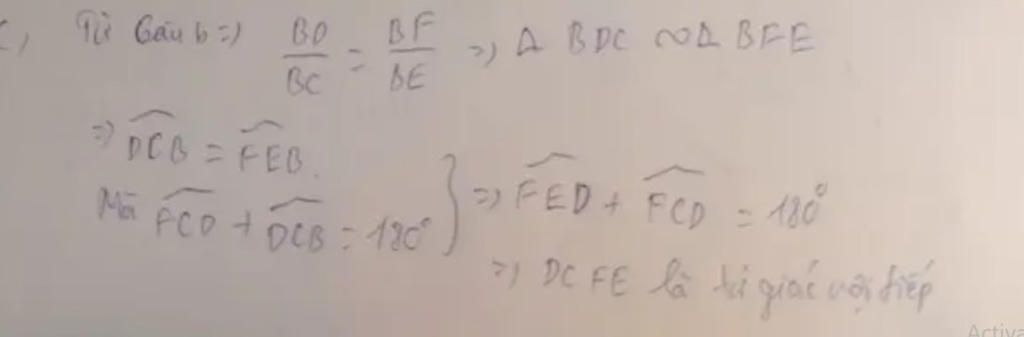 c, Từ Câu b => BD/BC = BF/BE => Δ BDC ∽ Δ BFE
=> DCB = FEB.
Mà FCD + DCB = 180° } => FED + FCD = 180°
=> DCFE là tứ giác nội tiếp
Activa